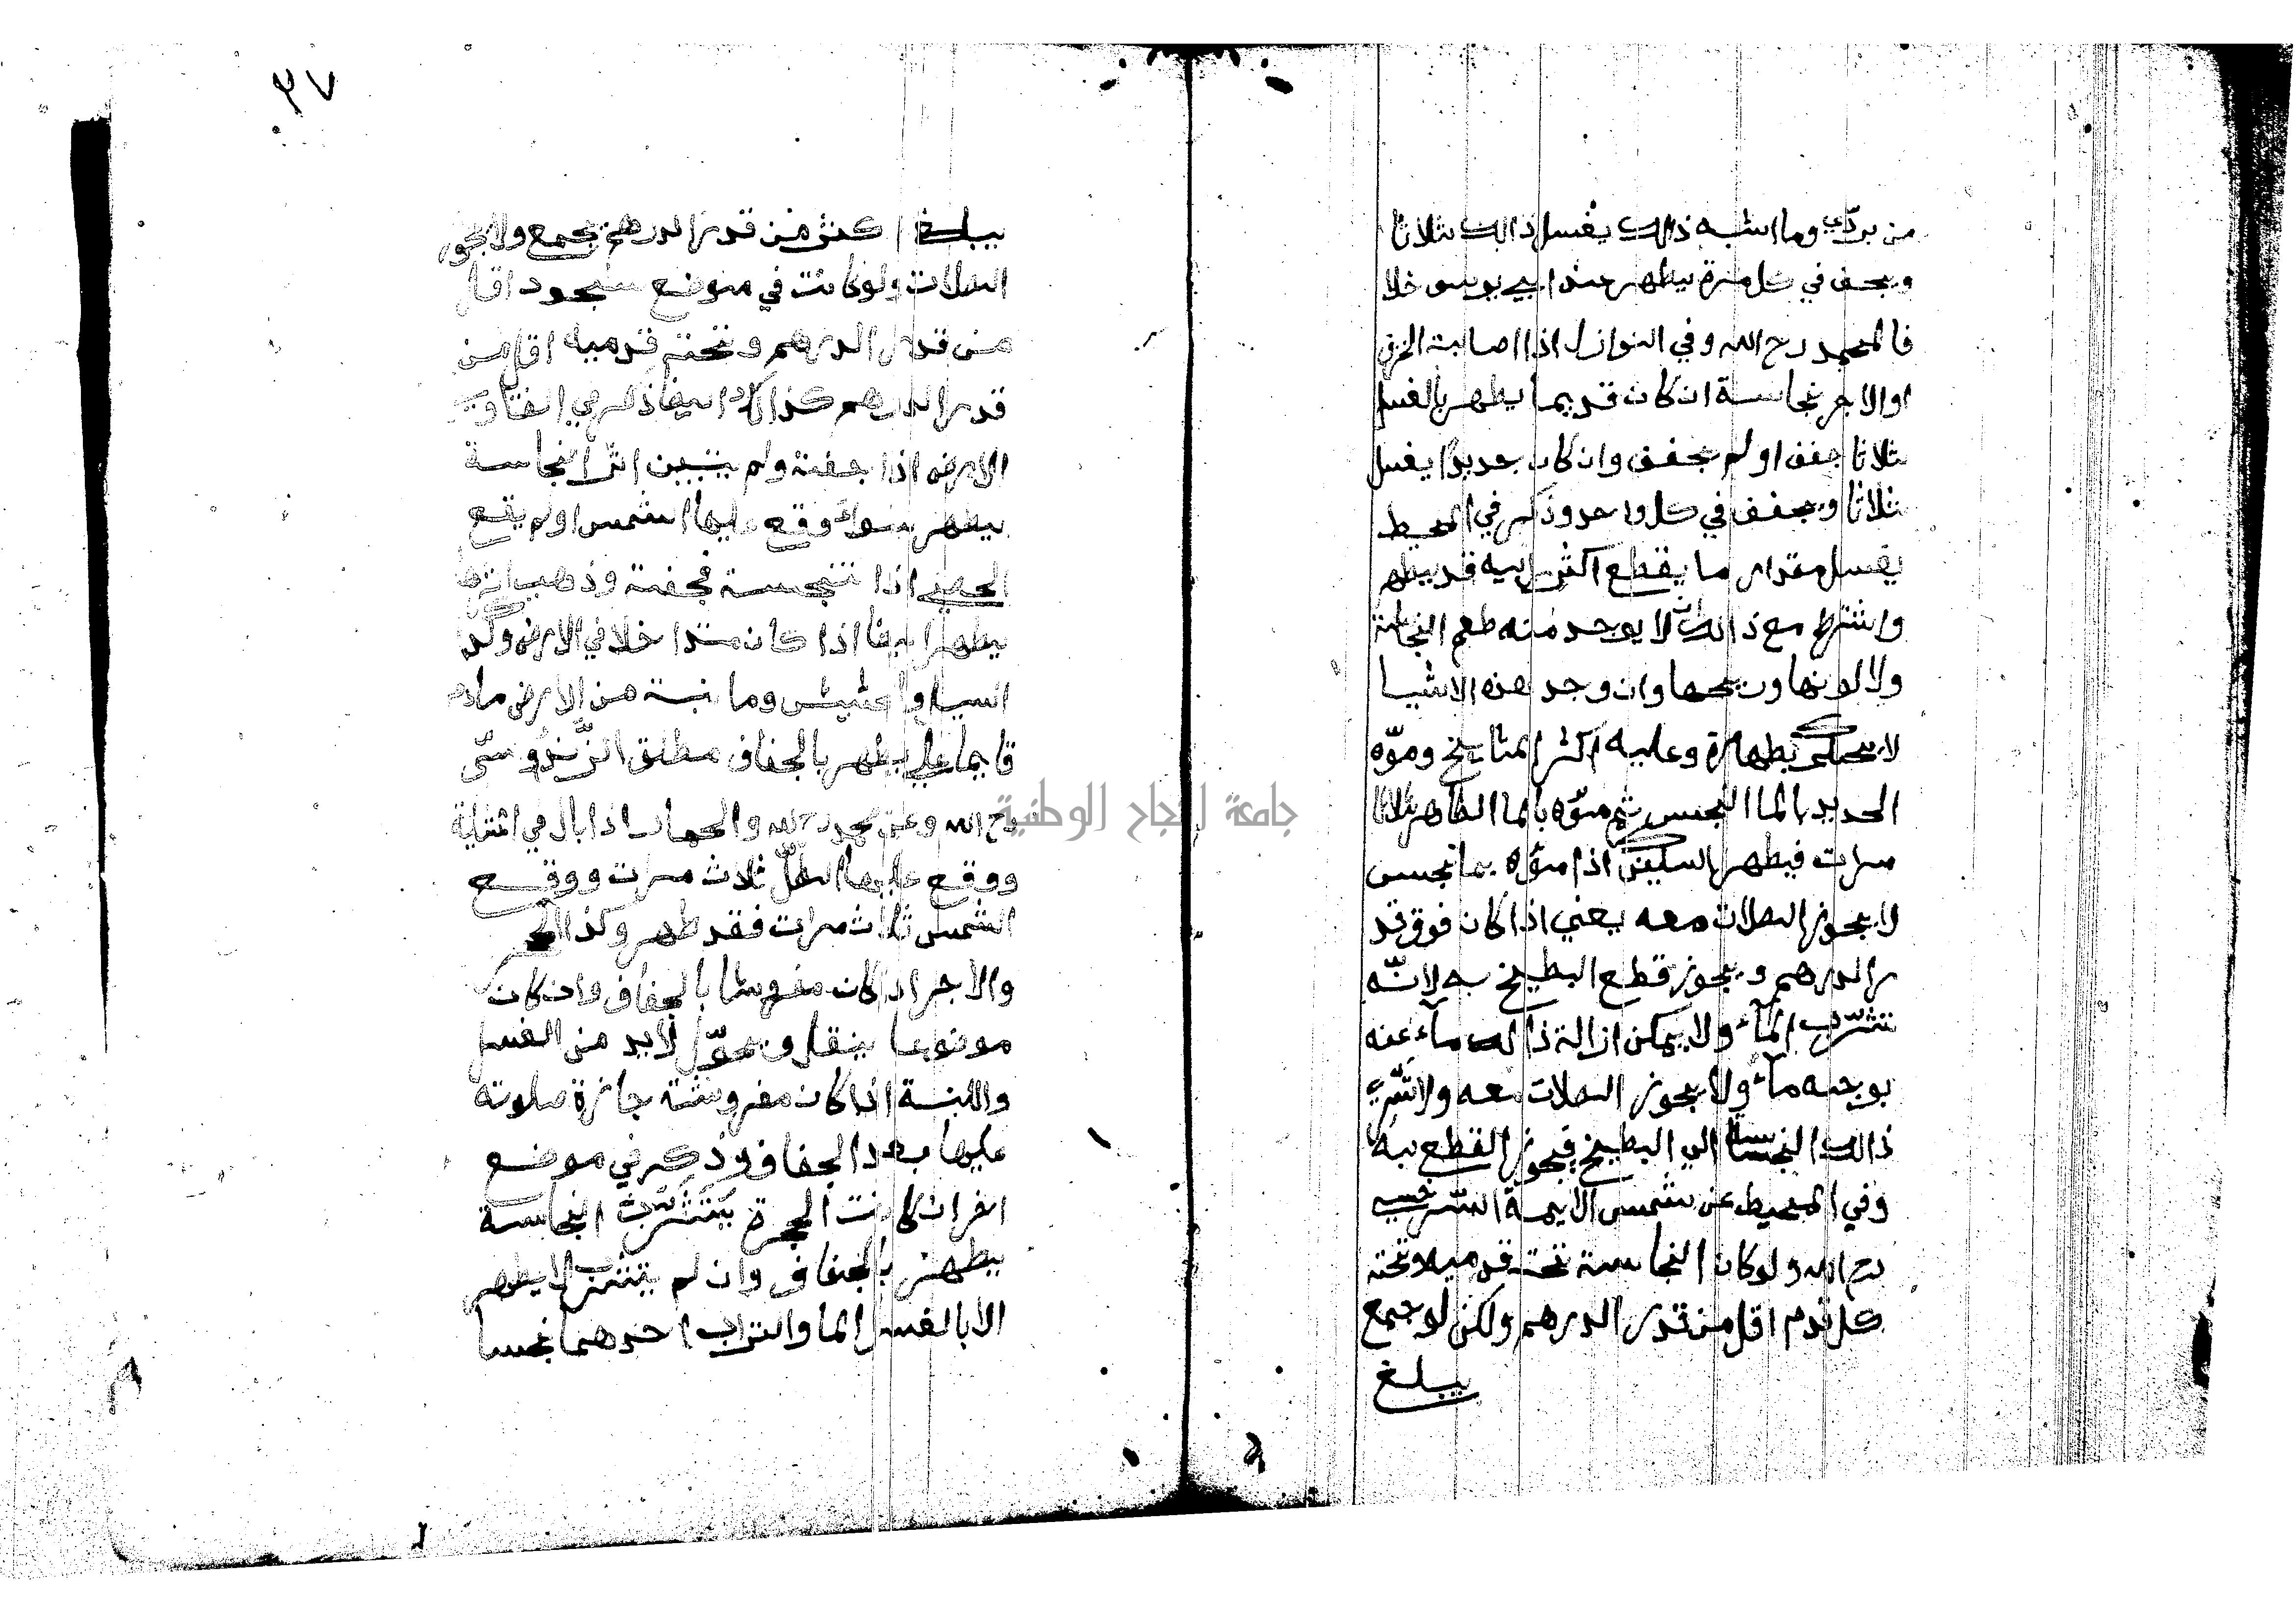 من بردي وما اشبه ذالك يغسل ذالك ثلاثا
ويجفف في كل مرة يطهر عند ابي يوسف خلا
فا لمحمد رح الله وفي النوازل اذا اصابة الخزف
او الاجر نجاسة ان كان قديما يطهر بالغسل
ثلاثا جفف او لم يجفف وان كان جديدا يغسل
ثلاثا ويجفف في كل واحد وذكر في المحيط
يغسل مقدار ما يقطع اكثر رايه قد يطهر
واشترط مع ذالك ان لا يوجد منه طعم النجاسة
ولا لونها ون يحها وان وجد هذه الاشيا
لا يحكم بطهارة وعليه اكثر المشايخ وموّه
الحديد بالما النجس ثم موّه بالما الطاهر ثلاثا
مرات فيطهر السكين اذا موّه بما نجس
لا يجوز الصلات معه يعني اذا كان فوق قد
ر الدرهم ويجوز قطع البطيخ به لانّه
تتشرّب المآء ولا يمكن ازالة ذالك مآء عنه
بوجه مآء ولا يجوز الصلات معه ولا تشّرب
ذالك النجسة الي البطيخ فيجوز القطع به
وفي المحيط عن شمس الايمة السّرخسي
رح الله ولو كان النجاسة تحت قدميه وتحت
كل قدم اقل من قدر الدرهم ولكن لو جمع
يبلغ
٣٧
يبلغ اكثر من قدر الدرهم يجمع ولا يجوز
الصلات ولو كانت في موضع سجود اقل
من قدر الدرهم وتحت قدميه اقل من
قدر الدرهم كذالك ايضا ذكر في الفتاوي
الارض اذا جفت ولم يتبين اثر النجاسة
يطهر سواء وقع عليها الشمس او لم يقع
الحصي اذا تنجست فجفت وذهب اثرها
يطهر ايضا اذا كان متداخلا في الارض وكذا
والحشيش وما نبت من الارض مادم
قايما عليها يطهر بالجفاف مطلق الزّندوستّي
رح الله وعن محمد رح الله والحمار اذا بال في
ووقع عليها الطلّ ثلاث مرات ووقع
الشمس ثلاث مرات فقد طهر وكذا الحجر
والاجر اذا كان مفروشا بالجفاف وان كان
موضوعا ينقل ويحوّل لا بد من الغسل
واللبنة اذا كان مفروشة جازة صلوته
عليها بعد الجفاف وذكر في موضع
اخر ان كانت الحجرة يتشرّب النجاسة
يطهر بالجفاف وان لم يتشرب لا يطهر
الا بالغسل الما والتراب احدهما نجسا
جامعة النجاح الوطنية